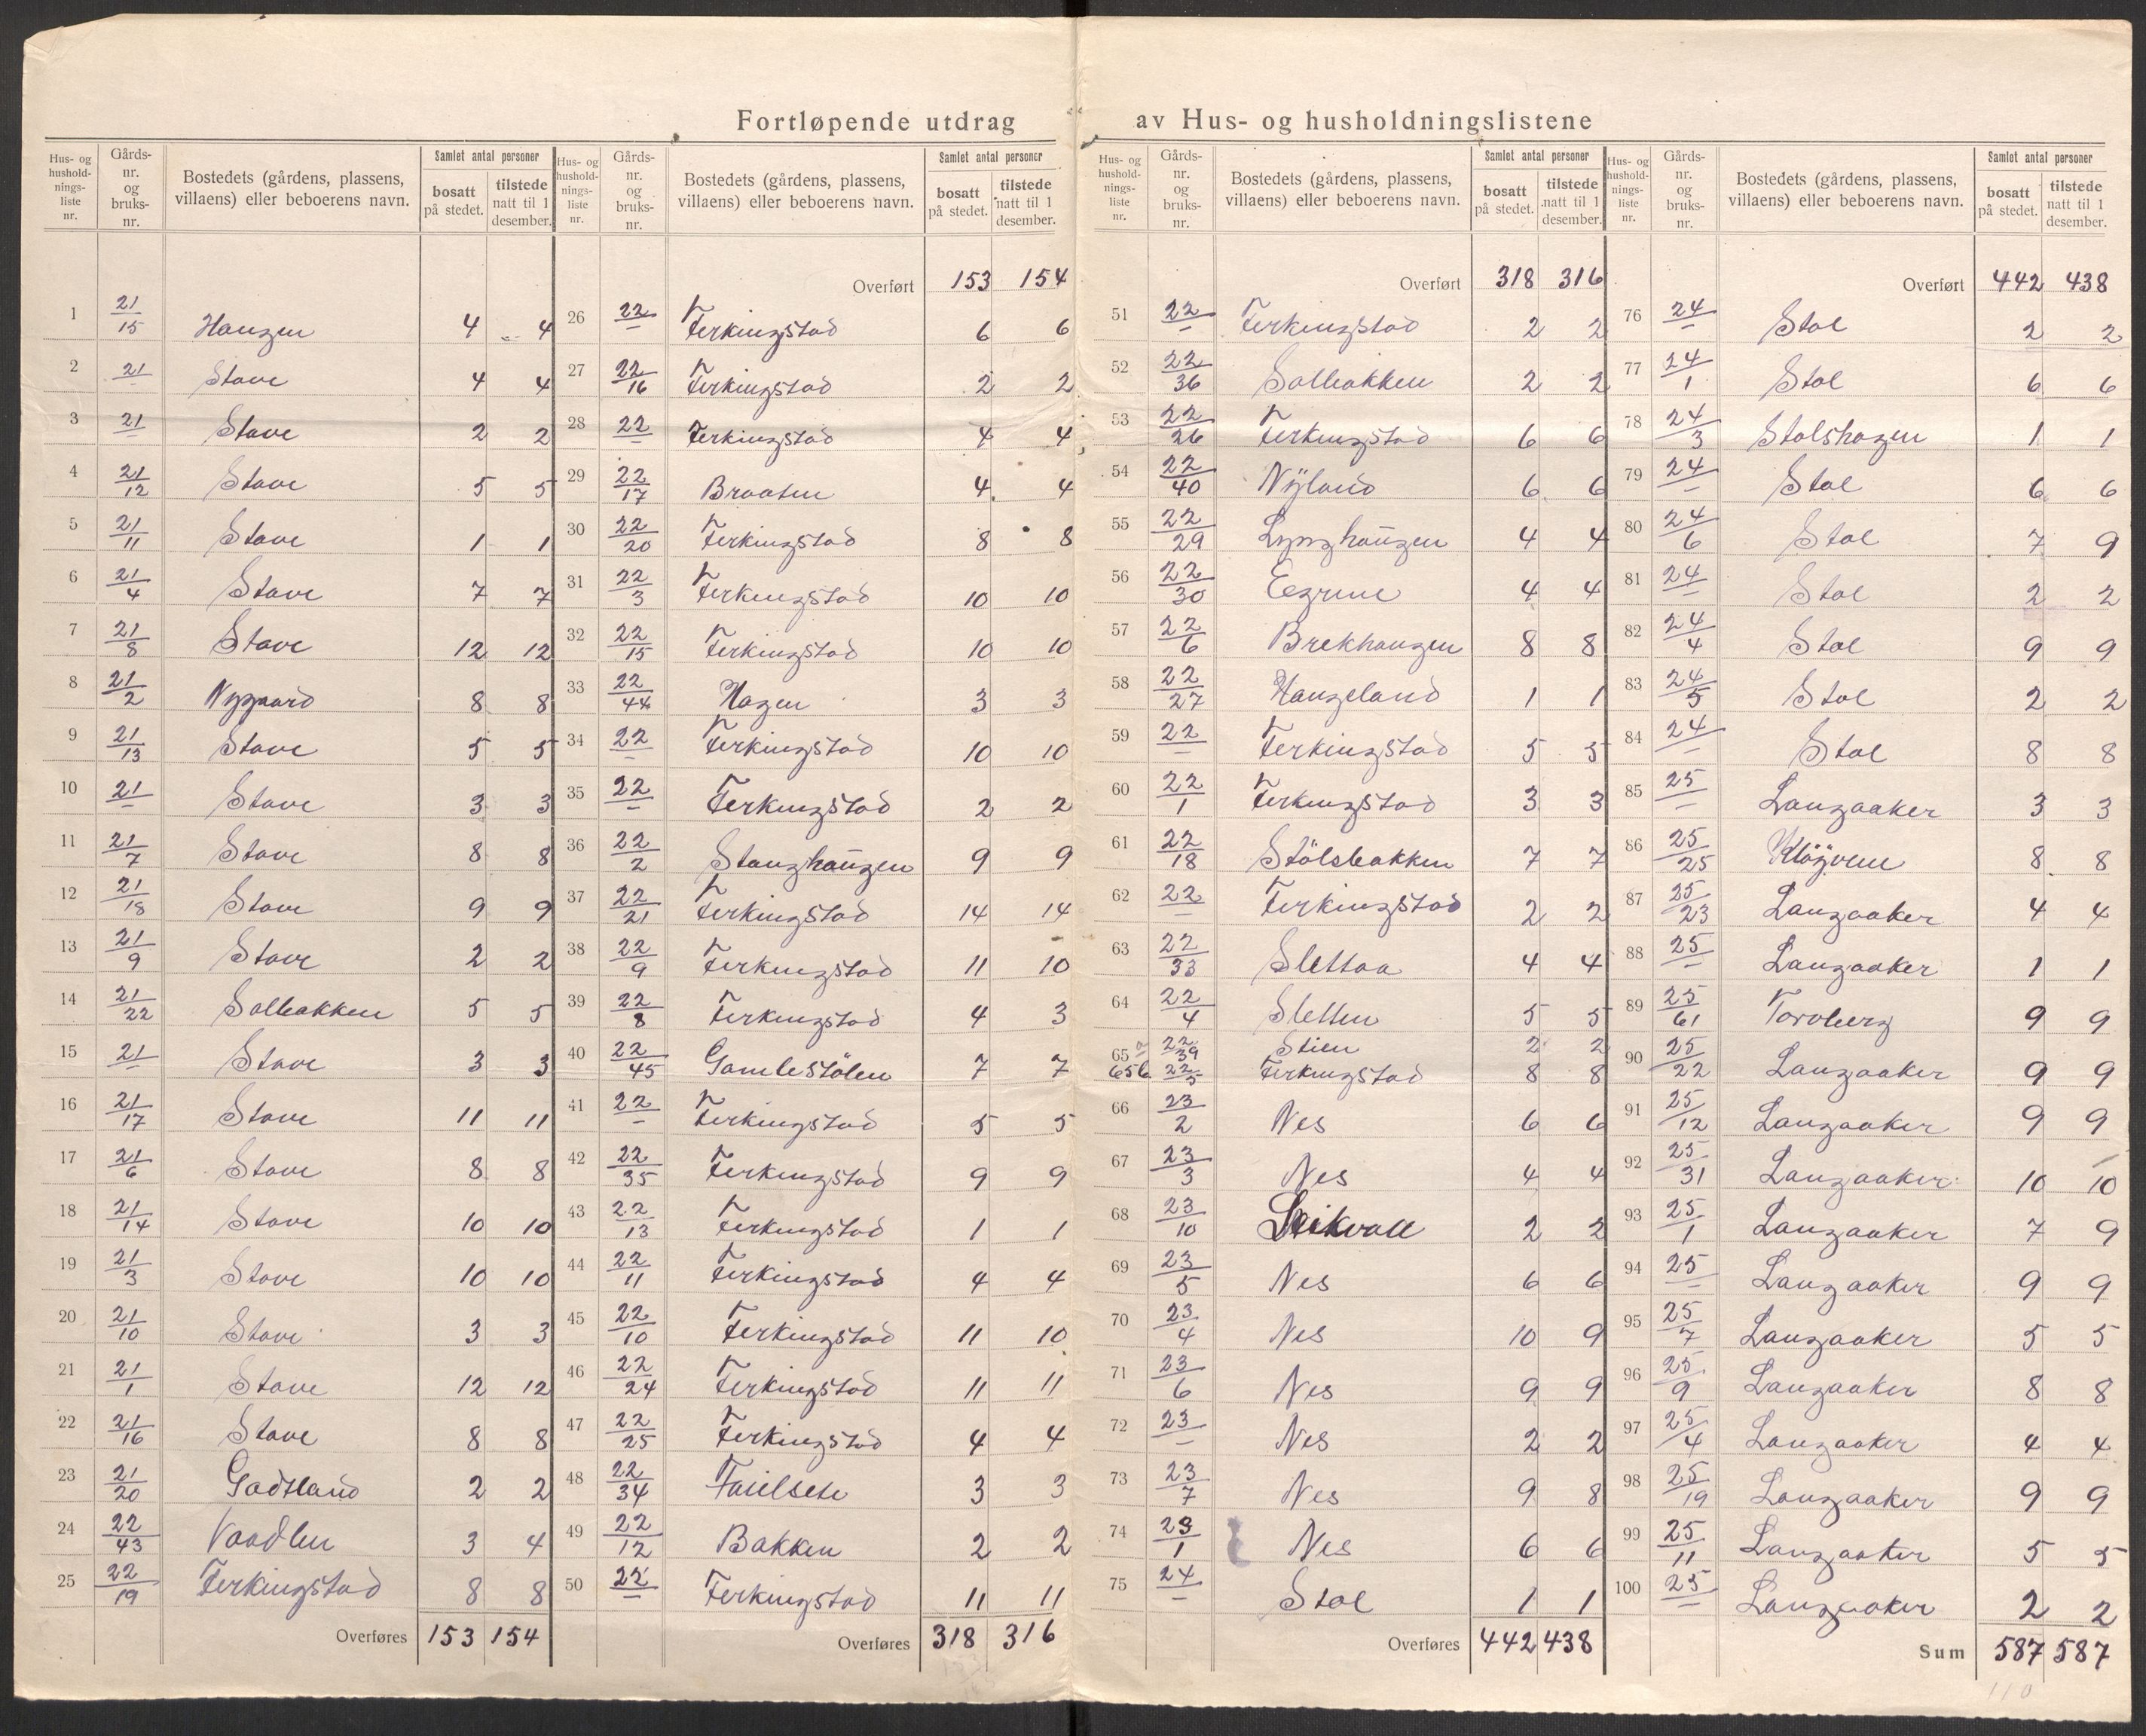 Fortløpende utdrag av Hus- og husholdningslistene
Hus- og husholdningsliste nr. | Gårds- nr. og bruks- nr. | Bostedets (gårdens, plassens, villaens) eller beboerens navn. | Samlet antal personer | bosatt på stedet. | tilstede natt til 1 desember.
1 21/15 Haugen 4 4
2 21/– Stave 4 4
3 21/– Stave 2 2
4 21/12 Stave 5 5
5 21/11 Stave 1 1
6 21/4 Stave 7 7
7 21/8 Stave 12 12
8 21/2 Nygaard 8 8
9 21/13 Stave 5 5
10 21/– Stave 3 3
11 21/7 Stave 8 8
12 21/18 Stave 9 9
13 21/9 Stave 2 2
14 21/22 Solbakken 5 5
15 21/– Stave 3 3
16 21/17 Stave 11 11
17 21/6 Stave 8 8
18 21/14 Stave 10 10
19 21/3 Stave 10 10
20 21/10 Stave 3 3
21 21/1 Stave 12 12
22 21/16 Stave 8 8
23 21/20 Godtland 2 2
24 22/43 Vaadlen 3 4
25 22/19 Ferkingstad 8 8
Overføres 153 154
Hus- og husholdningsliste nr. | Gårds- nr. og bruks- nr. | Bostedets (gårdens, plassens, villaens) eller beboerens navn. | Samlet antal personer | bosatt på stedet. | tilstede natt til 1 desember.
Overført 153 154
26 22/– Ferkingstad 6 6
27 22/16 Ferkingstad 2 2
28 22/– Ferkingstad 4 4
29 22/17 Braaten 4 4
30 22/20 Ferkingstad 8 8
31 22/3 Ferkingstad 10 10
32 22/15 Ferkingstad 10 10
33 22/44 Hagen 3 3
34 22/– Ferkingstad 10 10
35 22/– Ferkingstad 2 2
36 22/2 Stanghaugen 9 9
37 22/21 Ferkingstad 14 14
38 22/9 Ferkingstad 11 10
39 22/8 Ferkingstad 4 3
40 22/45 Gamlestölen 7 7
41 22/– Ferkingstad 5 5
42 22/35 Ferkingstad 9 9
43 22/13 Ferkingstad 1 1
44 22/11 Ferkingstad 4 4
45 22/10 Ferkingstad 11 10
46 22/24 Ferkingstad 11 11
47 22/25 Ferkingstad 4 4
48 22/34 3 3
49 22/12 Bakken 2 2
50 22/– Ferkingstad 11 11
Overføres 318 316
Hus- og husholdningsliste nr. | Gårds- nr. og bruks- nr. | Bostedets (gårdens, plassens, villaens) eller beboerens navn. | Samlet antal personer | bosatt på stedet. | tilstede natt til 1 desember.
Overført 318 316
51 22/– Ferkingstad 2 2
52 22/36 Solbakken 2 2
53 22/26 Ferkingstad 6 6
54 22/40 Nÿland 6 6
55 22/29 Lynghaŭgen 4 4
56 22/30 4 4
57 22/6 Brekhaugen 8 8
58 22/27 Haugeland 1 1
59 22/– Ferkingstad 5 5
60 22/1 Ferkingstad 3 3
61 22/18 Stölsbakken 7 7
62 22/– Ferkingstad 2 2
63 22/33 Slettaa 4 4
64 22/4 Sletten 5 5
65 a 22/39 Stien 2 2
65 b 22/5 Ferkingstad 8 8
66 23/2 Nes 6 6
67 23/3 Nes 4 4
68 23/10 Leikvoll 2 2
69 23/5 Nes 6 6
70 23/4 Nes 10 9
71 23/6 Nes 9 9
72 23/– Nes 2 2
73 23/7 Nes 9 8
74 23/1 Nes 6 6
75 24/– Stol 1 1
Overføres 442 438
Hus- og husholdningsliste nr. | Gårds- nr. og bruks- nr. | Bostedets (gårdens, plassens, villaens) eller beboerens navn. | Samlet antal personer | bosatt på stedet. | tilstede natt til 1 desember.
Overført 442 438
76 24/– Stol 2 2
77 24/1 Stol 6 6
78 24/3 Stolshagen 1 1
79 24/– Stol 6 6
80 24/6 Stol 7 9
81 24/– Stol 2 2
82 24/4 Stol 9 9
83 24/5 Stol 2 2
84 24/– Stol 8 8
85 25/– Langaaker 3 3
86 25/25 8 8
87 25/23 Langaaker 4 4
88 25/– Langaaker 1 1
89 25/61 Torvberg 9 9
90 25/22 Langaaker 9 9
91 25/12 Langaaker 9 9
92 25/31 Langaaker 10 10
93 25/1 Langaaker 7 9
94 25/– Langaaker 9 9
95 25/7 Langaaker 5 5
96 25/9 Langaaker 8 8
97 25/4 Langaaker 4 4
98 25/19 Langaaker 9 9
99 25/11 Langaaker 5 5
100 25/– Langaaker 2 2
Sum 587 587
110